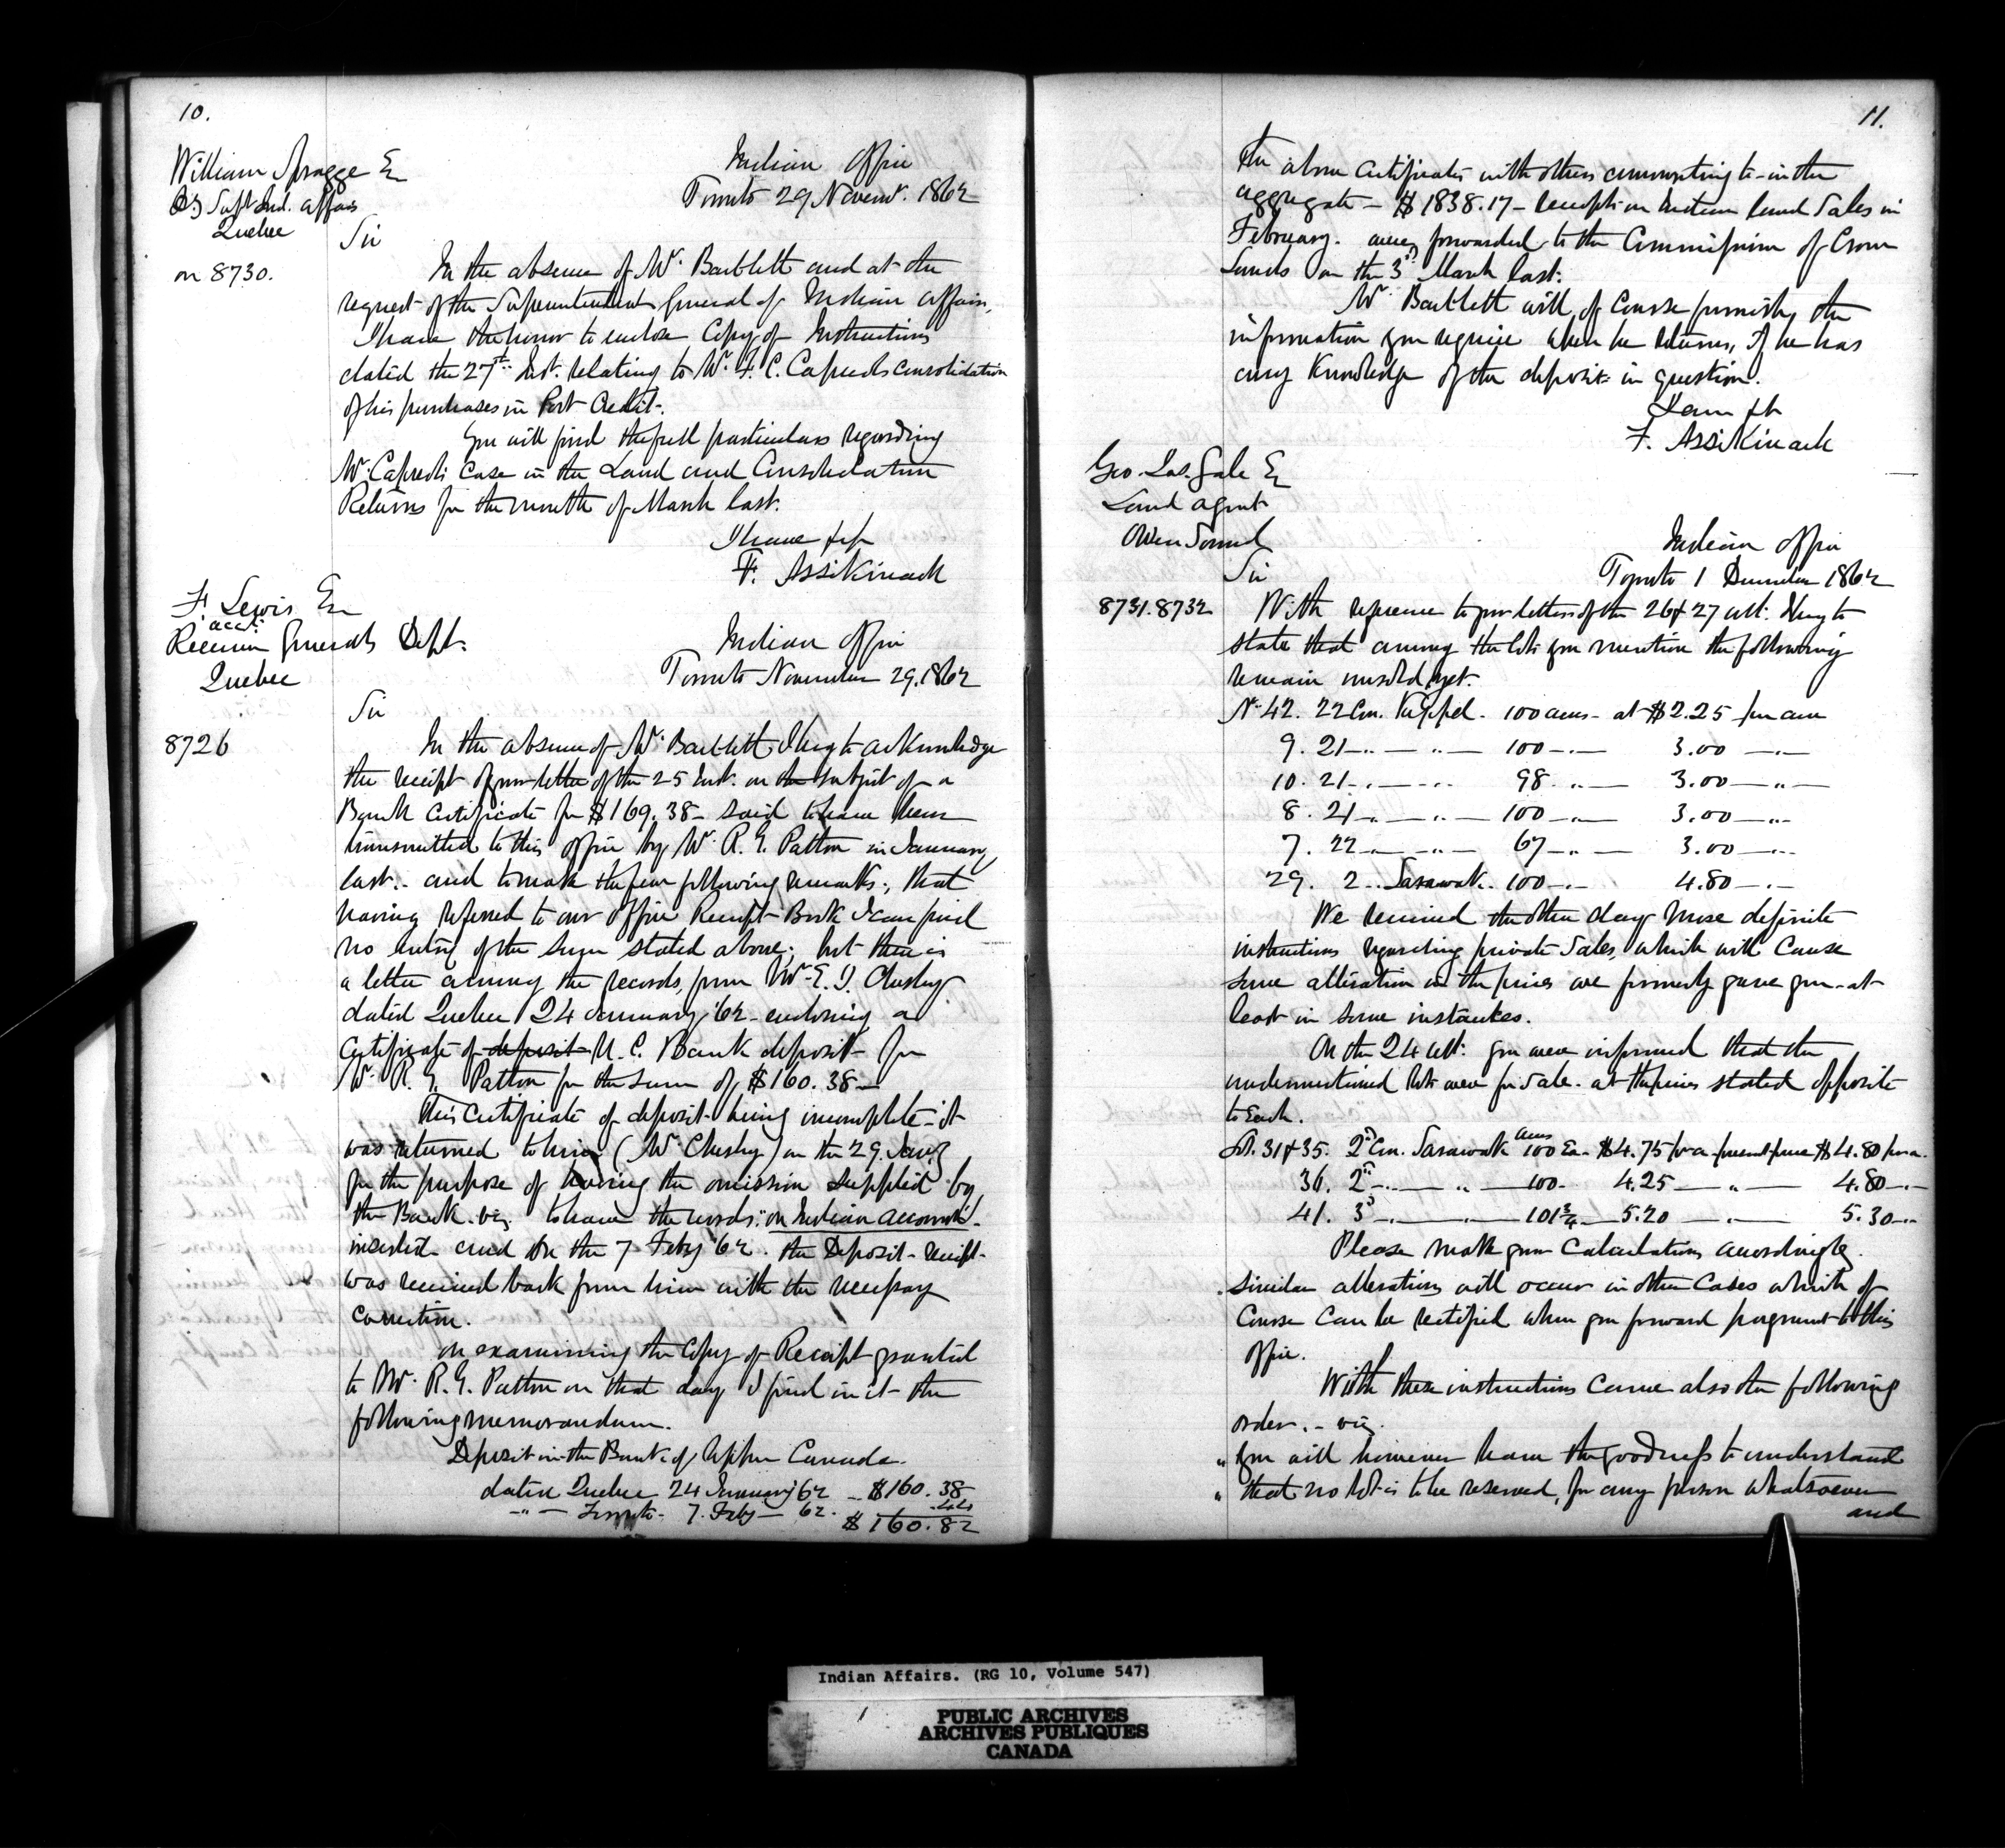 10.
William Spragge Esq
Dy Supt Ind. Affairs
Quebec
on 8730.
Indian Office
Toronto 29 Novemr. 1862
Sir
In the absence of Mr. Bartlett and at the
request of the Superintendent General of Indian Affairs,
I have the honor to enclose Copy of Instructions
dated the 27th Inst. relating to Mr. F. C. Capreol's consolidation
of his purchases in Port Credit.
You will find the full particulars regarding
Mr. Capreol's case in the Land and Consolidation
Returns for the month of March last.
I have &c
F. Assikinack
F. Lewis Esq
acct.
Receiver Generals Dept.
Quebec
Indian Office
Toronto November 29. 1862
Sir
8726
In the absence of Mr. Bartlett I beg to acknowledge
the receipt of your letter of the 25 Inst. on the subject of a
Bank Certificate for $169.38 - said to have been
transmitted to this office by Mr. R. G. Patton in January
last. - and to make the few following remarks; that
having referred to our Office Receipt Book I can find
no entry of the sum stated above; but there is
a letter among the records, from Mr. E. T.
dated Quebec 24 January '62 - enclosing a
Certificate of deposit U. C. Bank deposit for
Mr. R. G. Patton for the sum of $160.38 -
This Certificate of deposit being incomplete - it
was returned to him (Mr.) on the 29. Jany
for the purpose of having the omission supplied by
the Bank. viz. to have the words: "on Indian account" -
inserted and on the 7 Feby '62. the Deposit - receipt -
was received back from him with the necessary
correction.
On examining the Copy of Receipt granted
to Mr. R. G. Patton on that day I find in it the
following memorandum.
Deposit in the Bank of Upper Canada.
dated Quebec 24 January 62 - $160.38
" - Toronto - 7. Feby - 62. .44
$160.82
11.
The above Certificates with others amounting to - in the
aggregate - $1838.17 - receipts on Indian land Sales in
February. were forwarded to the Commissioner of Crown
Lands on the 3d. March last.
Mr. Bartlett will, of course furnish, the
information you require when he returns, if he has
any knowledge of the deposit in question.
I am &c
F. Assikinack
Geo. Jas. Gale Esq
Land agent
Owen Sound
Indian Office
Toronto 1 December 1862
Sir
8731.8732
With reference to your letters of the 26 & 27 ult. I beg to
state that among the lots you mention the following
remain unsold yet.
No. 42. 22 Con. Keppel. 100 acres - at $2.25 per acre
9. 21 - " - " - 100 - " - 3.00 - " -
10. 21 - " - " - 98 - " - 3.00 - " -
8. 21 - " - " - 100 - " - 3.00 - " -
7. 22 - " - " - 67 - " - 3.00 - " -
29. 2 .. Sarawak. 100 - " - 4.80 - " -
We received the other day more definite
instructions regarding private Sales, which will Cause
some alteration in the prices we formerly gave you - at
least in some instances.
On the 24 ult: you were informed that the
undermentioned lots were for Sale. at the prices stated opposite
to each.
Lot. 31 & 35. 2d Con. Sarawak 100 acres Ea - $4.75 pr a. present price $4.80 pr a.
36. 2d - " - " - 100 - 4.25 - " - 4.80 - " -
41. 3d - " - " - 101 3/4 - 5.20 - " - 5.30 - " -
Please make your Calculations accordingly.
Similar alterations will occur in other Cases which of
Course Can be rectified when you forward payment to this
Office.
With these instructions Came also the following
order. - viz.
" You will however have the goodness to understand
" that no lot is to be reserved, for any person whatsoever
and
Indian Affairs. (RG 10, Volume 547)
PUBLIC ARCHIVES
ARCHIVES PUBLIQUES
CANADA